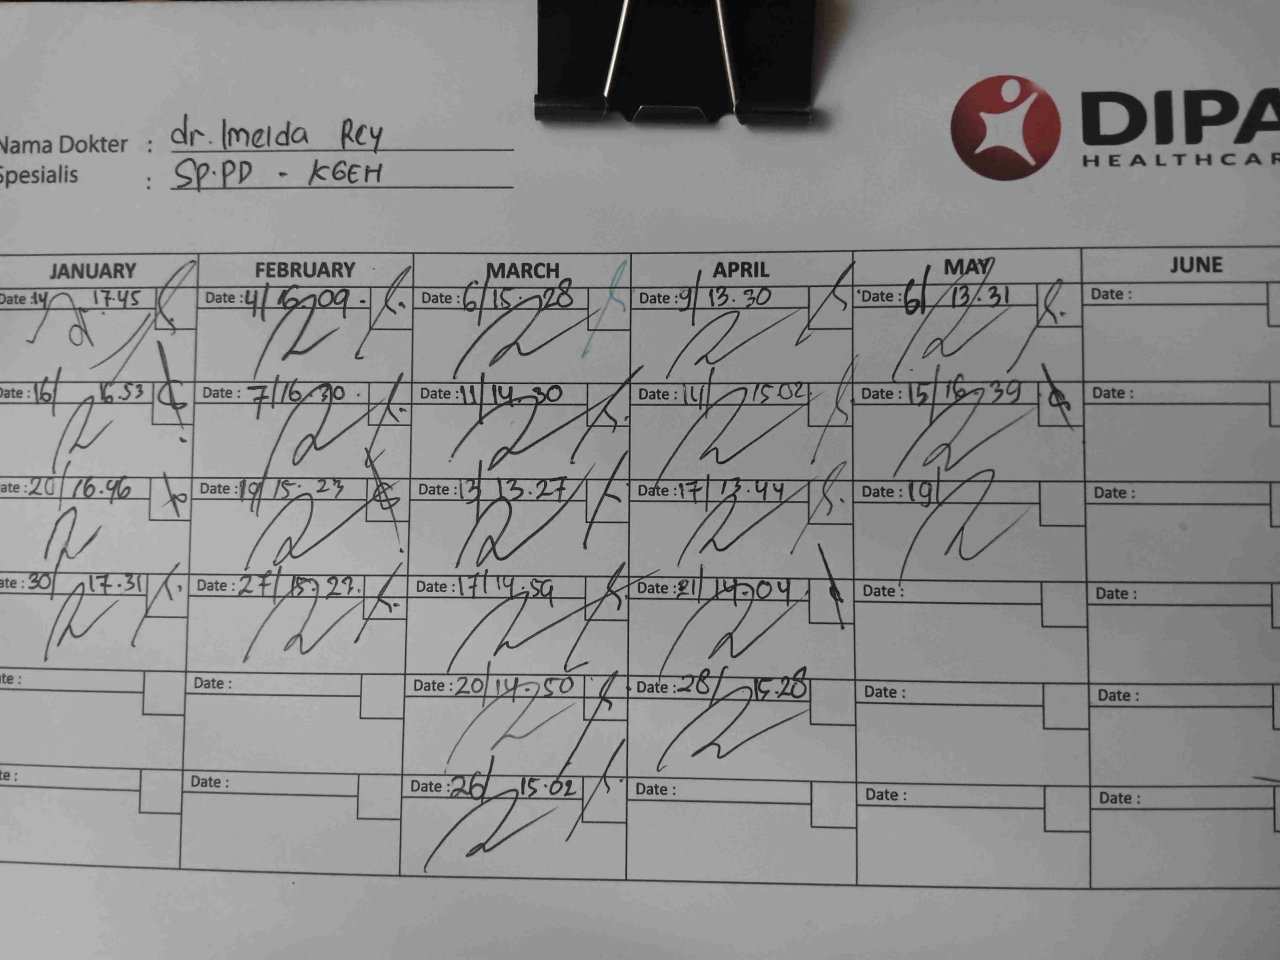 Nama Dokter : dr. Imelda Rey
Spesialis : SP.PD - KGEH
DIPA
HEALTHCAR
JANUARY FEBRUARY MARCH APRIL MAY JUNE
Date :14 17.45 Date :4/ 16.09 Date : 6/ 15.28 Date :9/ 13.30 Date : 6/ 13.31 Date :
Date :16/ 16.53 Date : 7/16.30 Date :11/14.30 Date :14/ 15.02 Date :15/16.39 Date :
ate :20/16.46 Date :19/15.23 Date :13/13.27 Date :17/13.44 Date :19/ Date :
ate :30/ 17.31 Date :27/15.22 Date :17/14.59 Date :21/14.04 Date : Date :
te : Date : Date :20/14.50 Date :28/ 15.28 Date : Date :
te : Date : Date :26/ 15.02 Date : Date : Date :